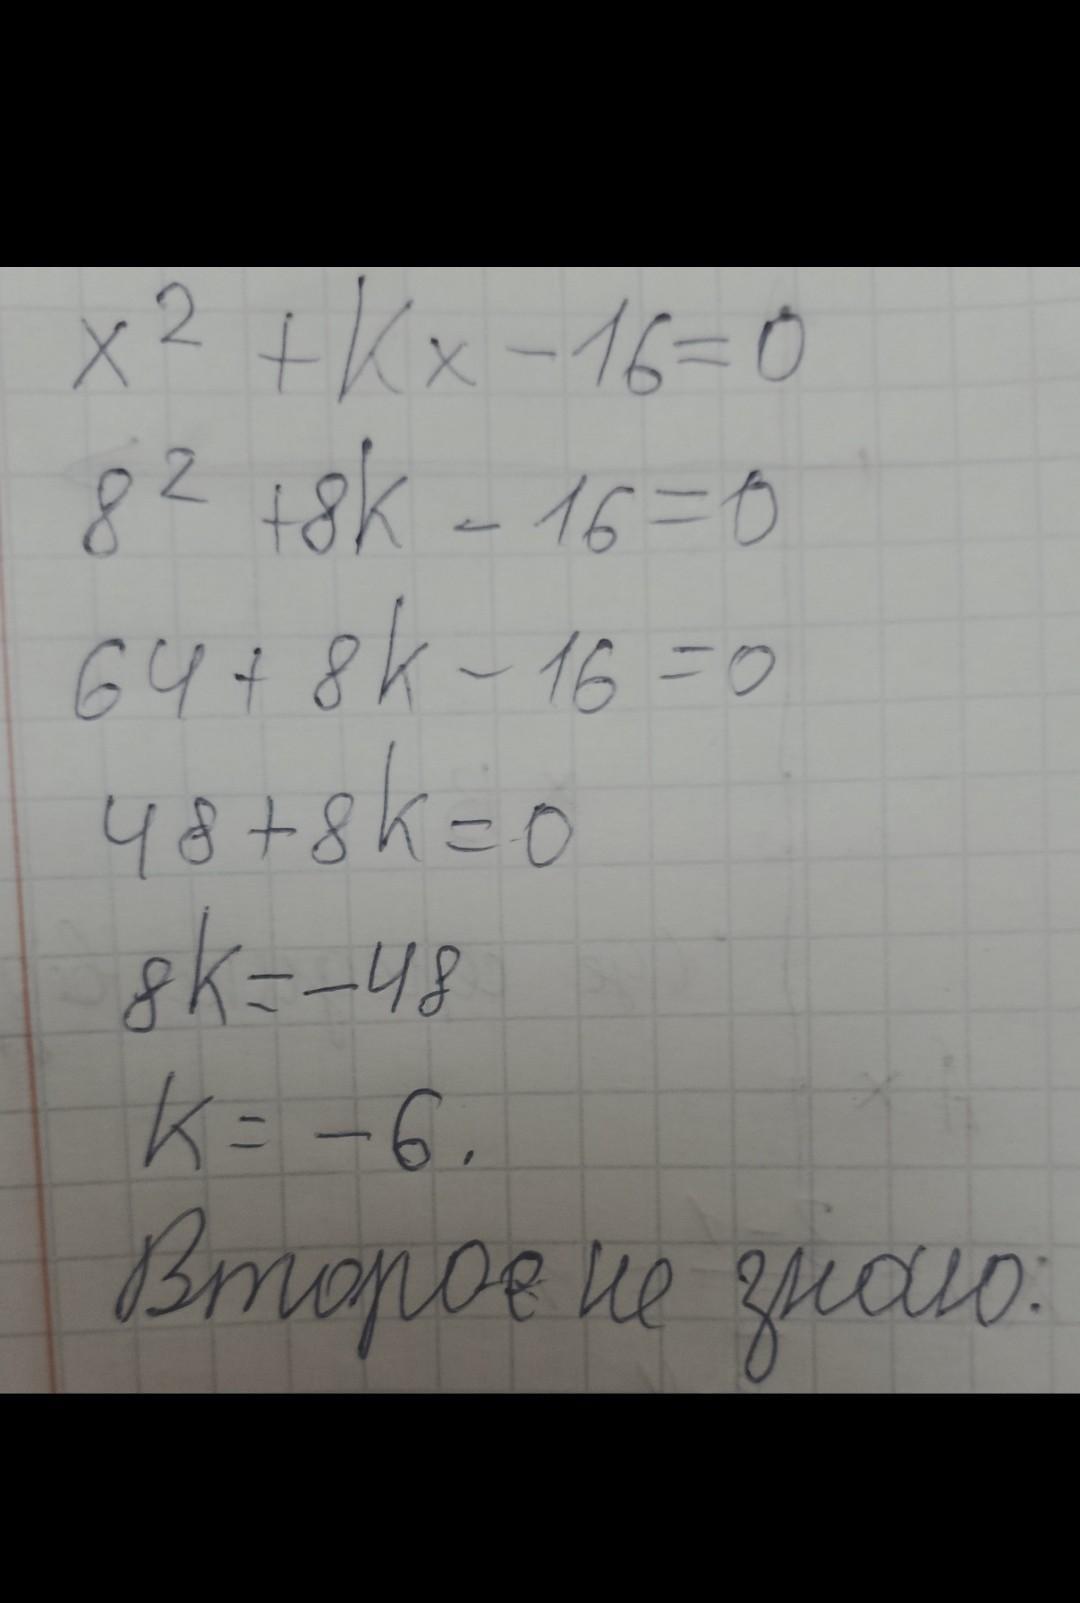 x² + kx - 16 = 0
8² + 8k - 16 = 0
64 + 8k - 16 = 0
48 + 8k = 0
8k = -48
k = -6.
Второе не знаю: